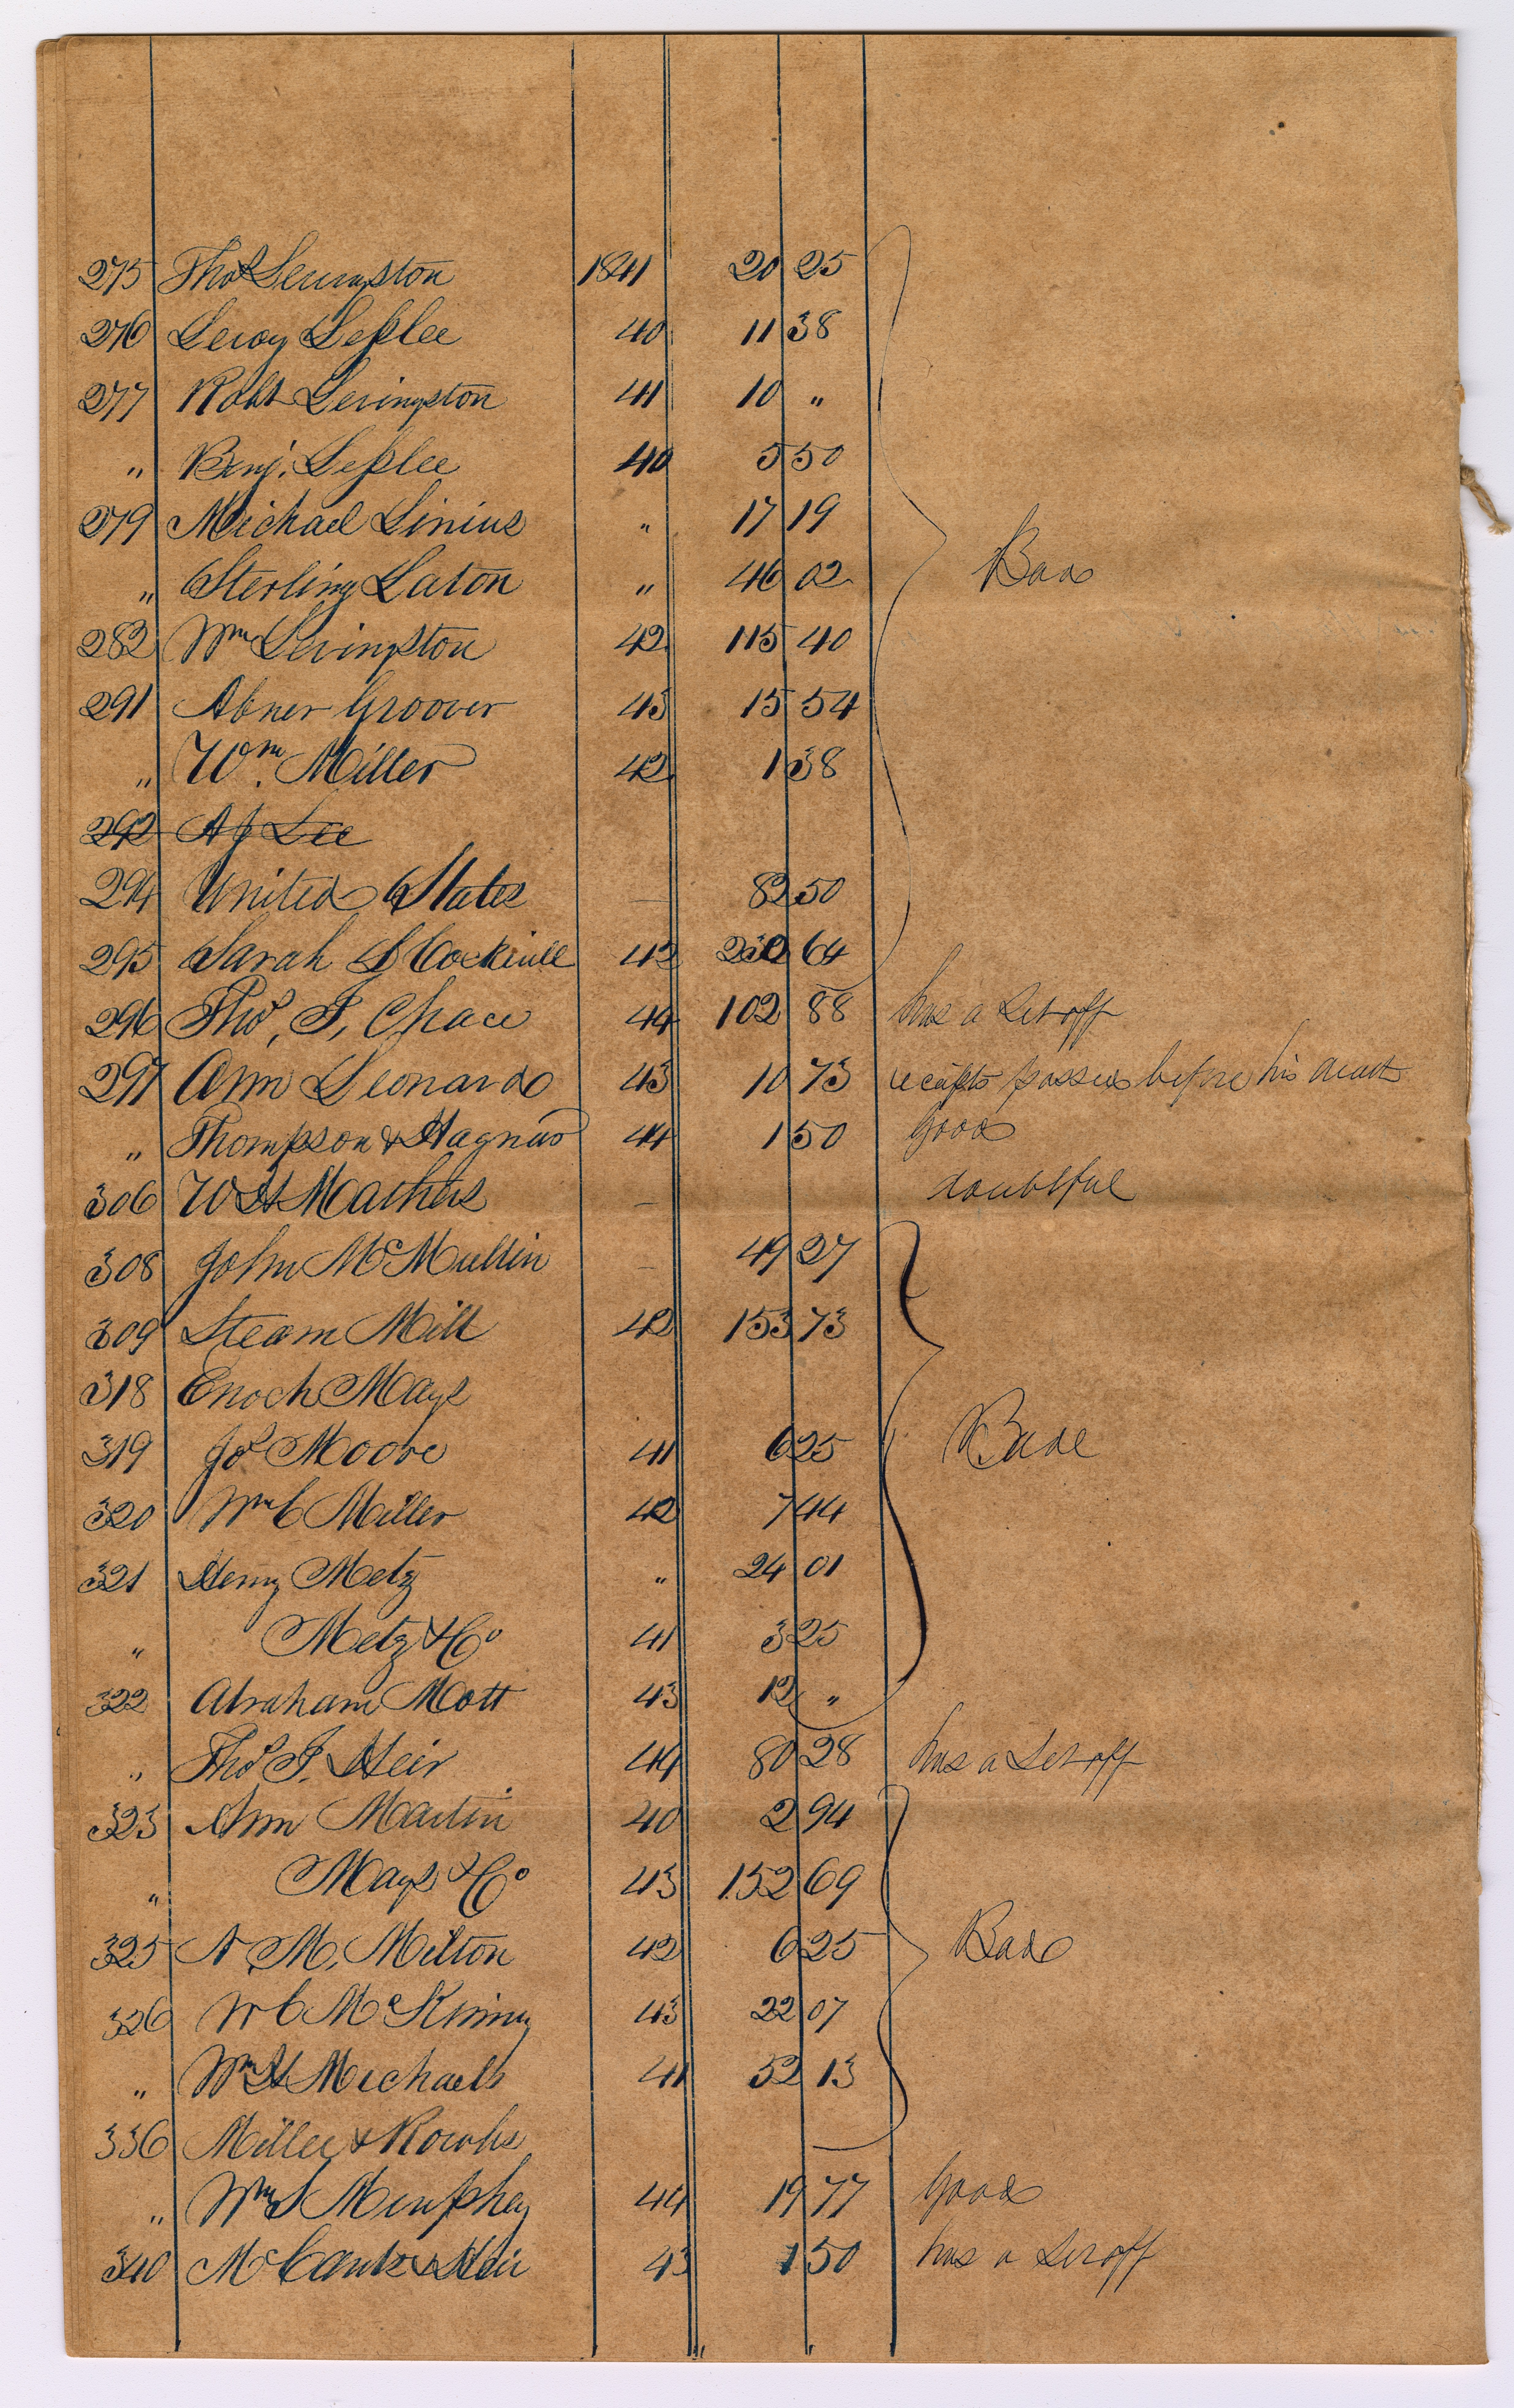 275 Thos Levingston 1841 20 25
276 Leroy Leplee 40 11 38
277 Robt Levingston 41 10 "
" Benj. Leplee 40 5 50
279 Michael Linius " 17 19
" Sterling Laton " 46 02 Bad
282 Wm Levingston 42 115 40
291 Abner Groover 43 15 54
" Wm. Miller 42 1 38
292 A J Lee
294 United States — 82 50
295 Sarah 42 64
296 Thos, J, Chace 44 102 88 has a Set off
297 Ann Leonard 43 10 73 receipts passed before his death
" Thompson & Hagnus 44 1 50 good
306 W H Mathers — doubtful
308 John McMullin — 49 27
309 Steam Mill 42 153 73
318 Enoch Mays
319 Jos Moore 41 6 25 Bad
320 Wm C Miller 42 7 44
321 Henry Metz " 24 01
" Metz & Co 41 3 25
322 Abraham Mott 43 12 "
" Thos J. Heir 44 80 28 has a Set off
323 Ann Martin 40 2 94
" Mays & Co 43 152 69
325 A. M. Milton 42 6 25 Bad
326 W C McKinny 43 22 07
" Wm H Michaels 41 52 13
336 Miller & Rowls
" Wm S Murphey 44 19 77 good
340 & Heir 43 1 50 has a Set off